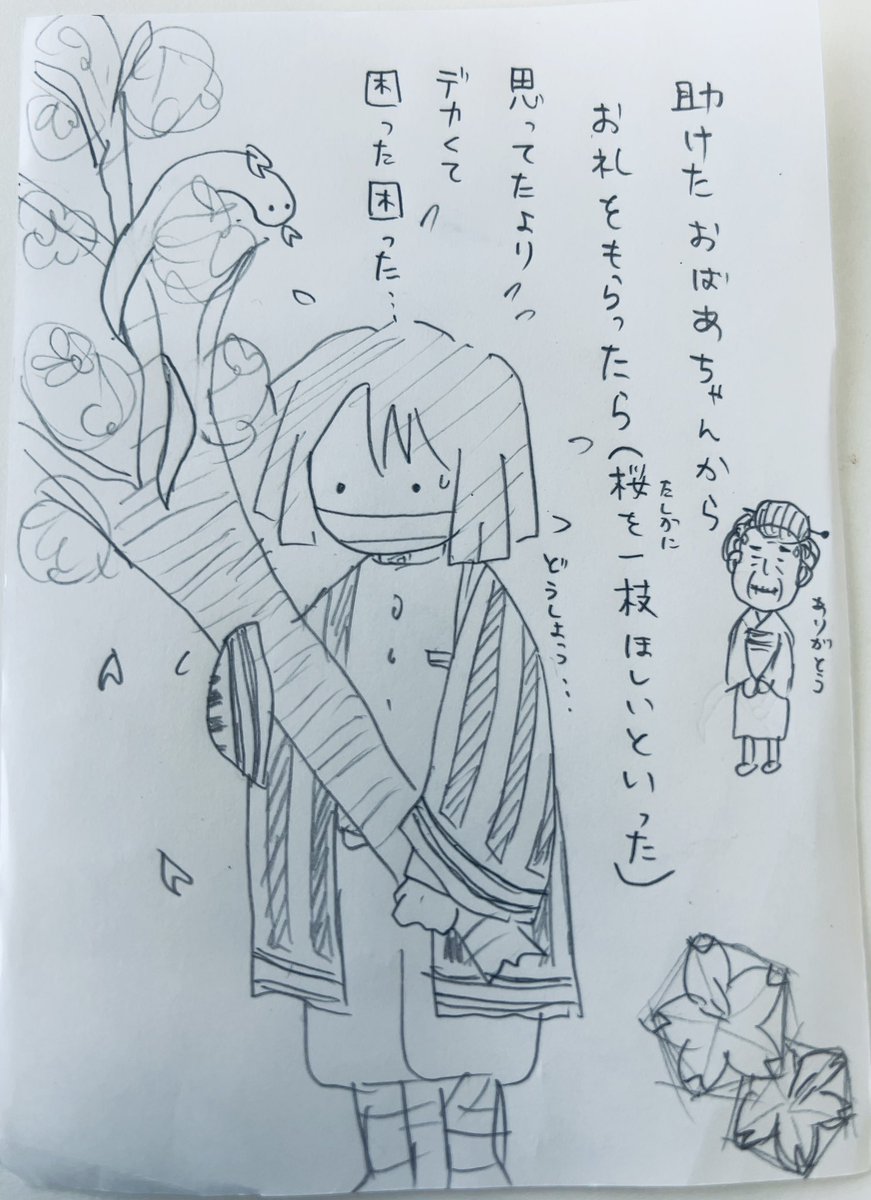 助けたおばあちゃんから
お礼をもらったら(桜を一枝ほしいといった)
たしかに
思ってたより
デカくて
困った困った…
どうしよう…
ありがとう